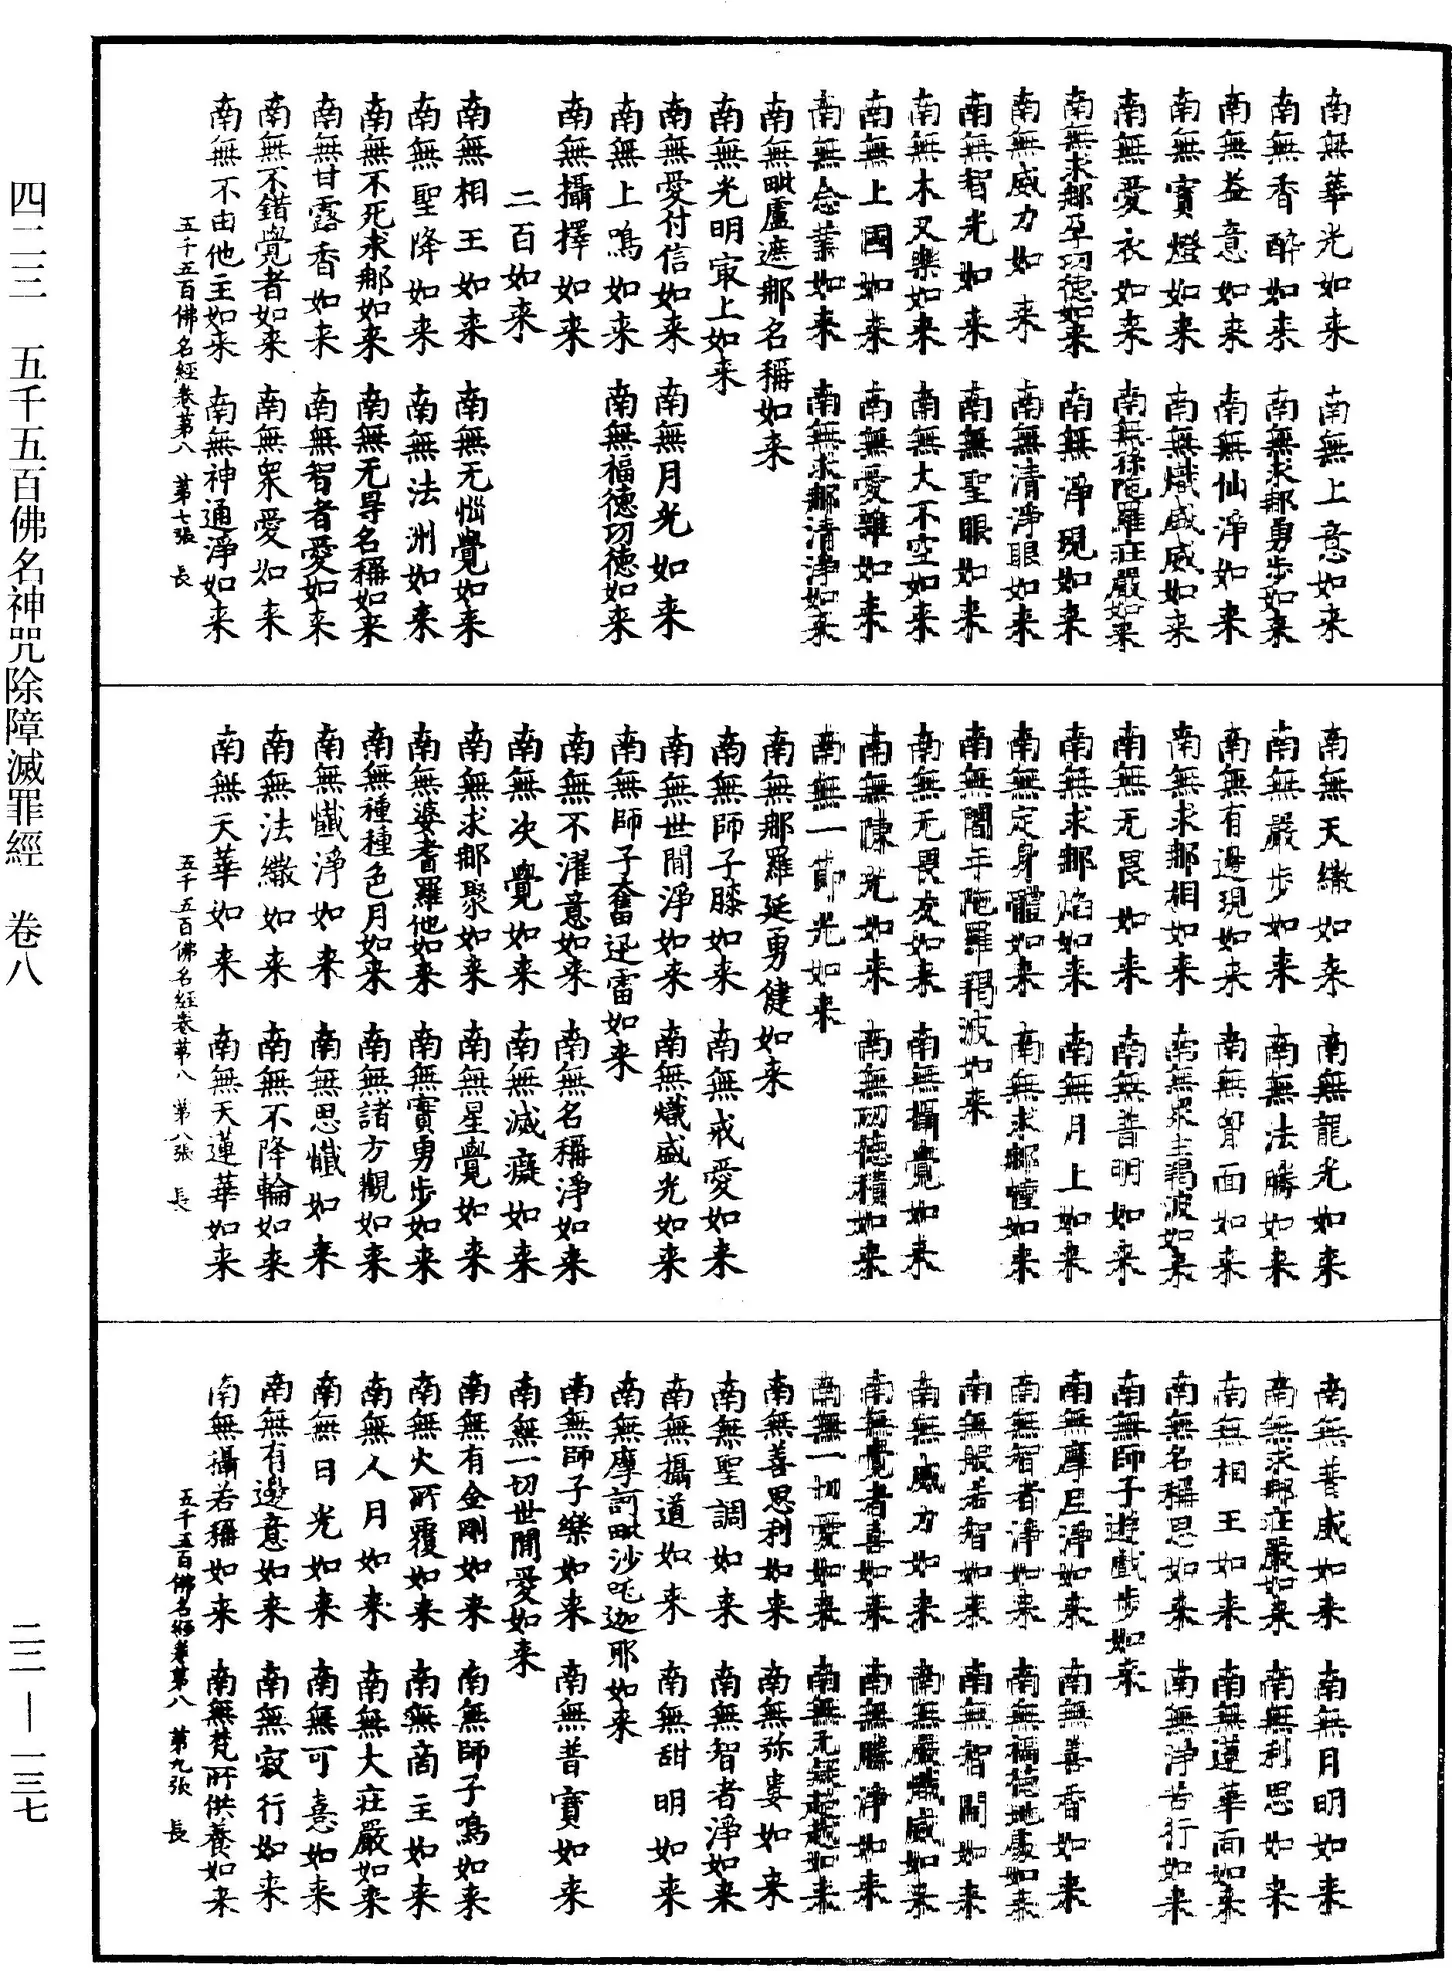 南無華光如来　南無上意如来
南無香醉如来　南無求那勇步如来
南無益意如来　南無仙淨如来
南無寳燈如来　南無熾盛威如来
南無愛衣如来　南無孫陁羅莊嚴如来
南無求那至功德如来　南無淨現如来
南無威力如来　南無清淨眼如来
南無智光如来　南無聖眼如来
南無木叉樂如来　南無大不空如来
南無上國如来　南無愛讎如来
南無念業如来　南無求那清淨如来
南無毗盧遮那名稱如来
南無光明㝡上如来
南無愛付信如来　南無月光如来
南無上鳴如来　南無福德功德如来
南無攝擇如来
二百如来
南無相王如来　南無无惱覺如来
南無聖降如来　南無法洲如来
南無不死求那如来　南無无㝵名稱如来
南無甘露香如来　南無智者愛如来
南無不錯覺者如来　南無衆愛如来
南無不由他主如来　南無神通淨如来
五千五百佛名經卷第八　第七張　長
南無天繖如来　南無龍光如来
南無嚴步如来　南無法勝如来
南無有邊現如来　南無月面如来
南無求那相如来　南無衆主
南無无畏如来　南無普明如来
南無求那焰如来　南無月上如来
南無定身體如来　南無求那幢如来
南無闍年陁羅羯波如来
南無无畏友如来　南無攝覺如来
南無陳光如来　南無功德積如来
南無一節光如来
南無那羅延勇健如来
南無師子膝如来　南無戒愛如来
南無世閒淨如来　南無熾盛光如来
南無師子奮迅雷如来
南無不濯意如来　南無名稱淨如来
南無次覺如来　南無滅癡如来
南無求那聚如来　南無星覺如来
南無婆耆羅他如来　南無寳勇步如来
南無種種色月如来　南無諸方觀如来
南無懺淨如来　南無思懺如来
南無法繖如来　南無不降輪如来
南無天華如来　南無天蓮華如来
五千五百佛名經卷第八　第八張　長
南無善威如来　南無月明如来
南無求那莊嚴如来　南無利思如来
南無相王如来　南無蓮華面如来
南無名稱思如来　南無淨苦行如来
南無師子遊戲步如来
南無摩尼淨如来　南無善香如来
南無智者淨如来　南無福德地處如来
南無般若智如来　南無智開如来
南無威力如来　南無嚴熾威如来
南無覺者喜如来　南無勝淨如来
南無一切愛如来　南無无疑越如来
南無善思利如来　南無弥婁如来
南無聖調如来　南無智者淨如来
南無攝道如来　南無甜明如来
南無摩訶毗沙吒迦耶如来
南無師子樂如来　南無普寳如来
南無一切世閒愛如来
南無有金剛如来　南無師子鳴如来
南無火所覆如来　南無商主如来
南無人月如来　南無大莊嚴如来
南無日光如来　南無可憙如来
南無有邊意如来　南無寂行如来
南無攝若稱如来　南無梵所供養如来
五千五百佛名經卷第八　第九張　長
四二三　五千五百佛名神咒除障滅罪經　卷八
二二—一三七